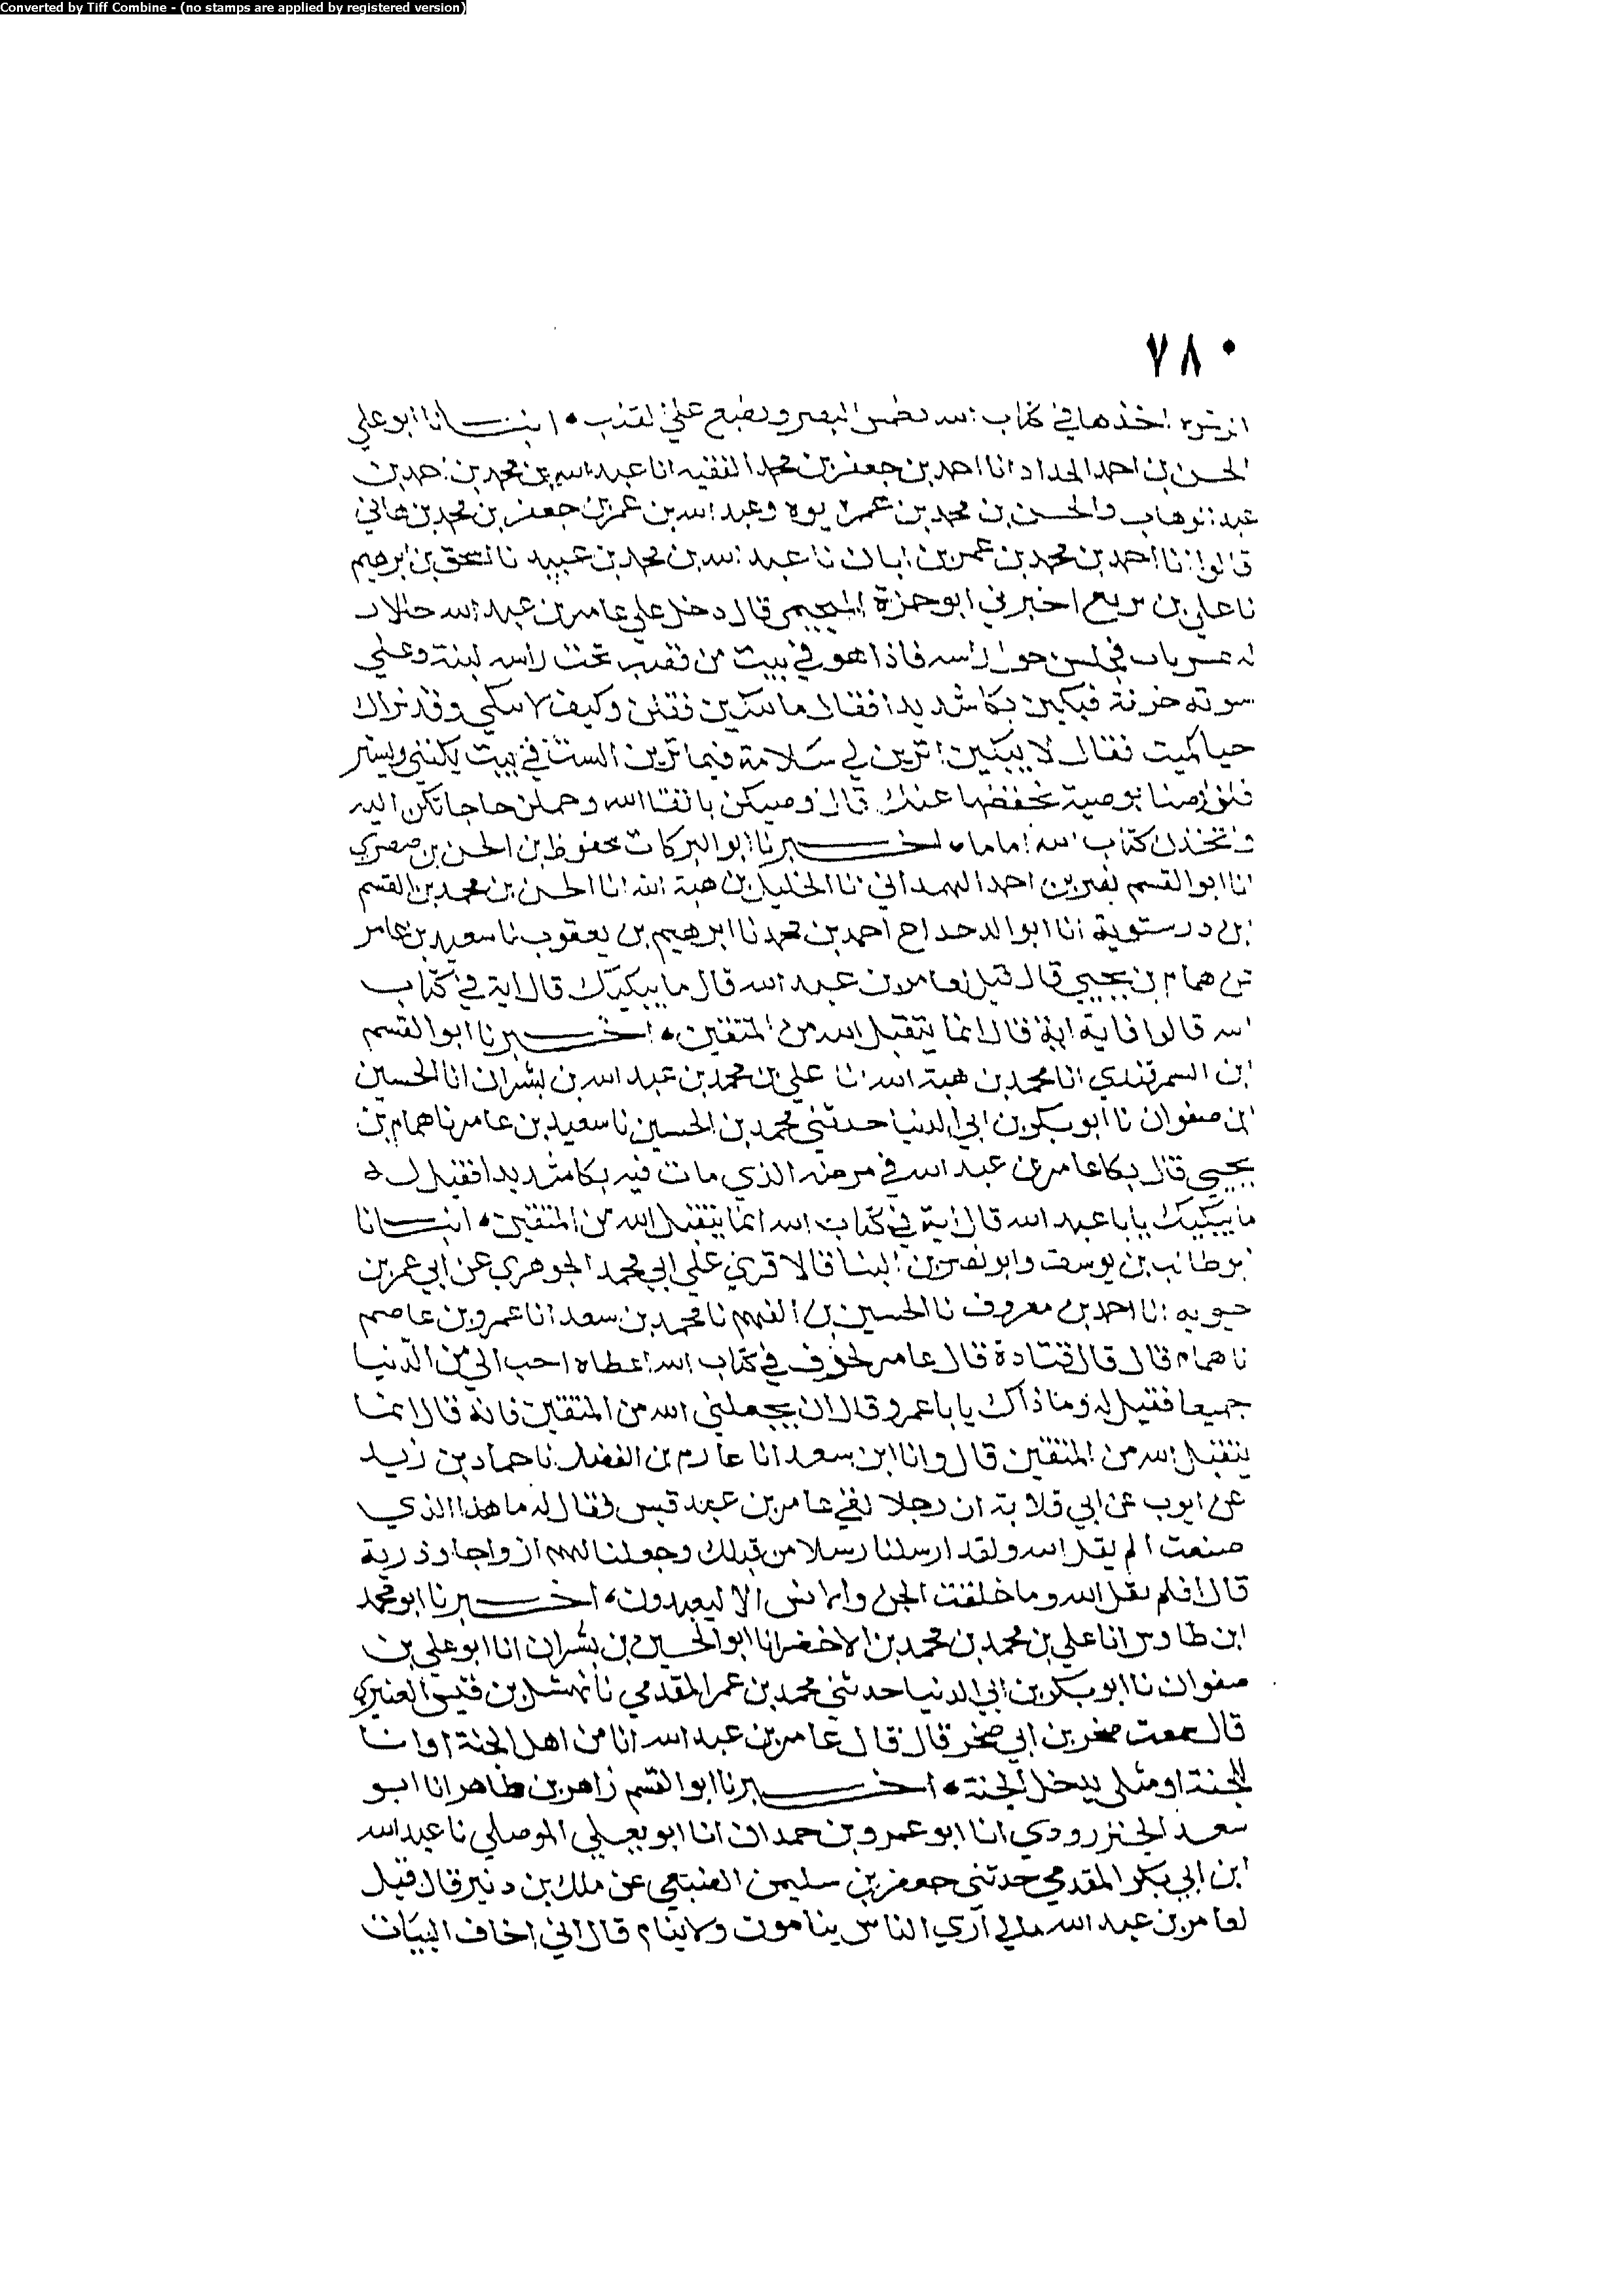 Converted by Tiff Combine - (no stamps are applied by registered version)
٧٨٠
اخذها في كتاب الله تطمس البصر وتطبع علي القلب ٠ انبـــانا ابو علي
الحسن بن احمد الحداد انا احمد بن جعفر بن محمد الفقيه انا عبد الله بن محمد بن احمد بن
عبد الوهاب والحسن بن محمد بن يوه وعبد الله بن عمر بن جعفر بن محمد بن هاني
قالوا انا احمد بن محمد بن عمر بن ابان نا عبد الله بن محمد بن عبيد نا اسحق بن ابرهيم
نا علي بن اخبرني ابو حمزة قال دخل علي عامر بن عبد الله
له فجلسن حول راسه فاذا هو في بيت من قصب تحت راسه لبنة وعلي
سوته خرقة فبكين بكا شديدا فقال ما يبكيكن فقلن وكيف لا نبكي وقد نراك
حيا كميت فقال لا تبكين اترين لي سلامة فيما ترين الست في بيت يكنني ويستر
قلن اوصنا بوصية نحفظها عنك قال اوصيكن باتقا الله وحملن حاجاتكن اليه
وتتخذن كتاب الله اماما ٠ اخـــبرنا ابو البركات محفوظ بن الحسن بن صصري
انا ابو القسم نصر بن احمد الهمداني نا الخليل بن هبة الله انا الحسن بن محمد بن القسم
بن درستوية انا ابو الدحداح احمد بن محمد نا ابرهيم بن يعقوب نا سعيد بن عامر
عن همام بن يحيي قال قيل لعامر بن عبد الله قال ما يبكيك قال اية في كتاب
الله قالوا فاية اية قال انما يتقبل الله من المتقين ٠ اخـــبرنا ابو القسم
ابن السمرقندي انا محمد بن هبة الله انا علي بن محمد بن عبد الله بن بشران انا الحسين
ابن صفوان نا ابو بكر بن ابي الدنيا حدثني محمد بن الحسين نا سعيد بن عامر نا همام بن
يحيي قال بكا عامر بن عبد الله في مرضه الذي مات فيه بكا شديدا فقيل له
ما يبكيك يابا عبد الله قال اية في كتاب الله انما يتقبل الله من المتقين ٠ انبـــانا
ابو طالب بن يوسف وابو نصر بن البنا قالا قري علي ابي محمد الجوهري عن ابي عمر بن
حيويه انا احمد بن معروف نا الحسين بن الفهم نا محمد بن سعد انا عمرو بن عاصم
نا همام قال قال قتادة قال عامر لحرف في كتاب الله اعطاه احب الي من الدنيا
جميعا فقيل له وما ذاك يابا عمرو قال ان يجعلني الله من المتقين فانه قال انما
يتقبل الله من المتقين قال وانا ابن سعد انا عارم بن الفضل نا حماد بن زيد
عن ايوب عن ابي قلابة ان رجلا لقي عامر بن عبد قيس فقال له ما هذا الذي
صنعت الم يقل الله ولقد ارسلنا رسلا من قبلك وجعلنا لهم ازواجا وذرية
قال افلم يقل الله وما خلقت الجن والانس الا ليعبدون ٠ اخـــبرنا ابو محمد
ابن طاوس انا علي بن محمد بن محمد بن الاخضر انا ابو الحسين بن بشران انا ابو علي بن
صفوان نا ابو بكر بن ابي الدنيا حدثني محمد بن عمر المقدمي نا نهشل بن قيس العنبري
قال سمعت صخر بن ابي صخر قال قال عامر بن عبد الله انا من اهل الجنة او انا
للجنة او مثلي يدخل الجنة ٠ اخـــبرنا ابو القسم زاهر بن طاهر انا ابو
سعد الجنزرودي انا ابو عمرو بن حمدان انا ابو يعلي الموصلي نا عبد الله
ابن ابي بكر المقدمي حدثني جعفر بن سليمن الضبعي عن ملك بن دنير قال قيل
لعامر بن عبد الله مالي اري الناس ينامون ولا ينام قال اني اخاف البيات